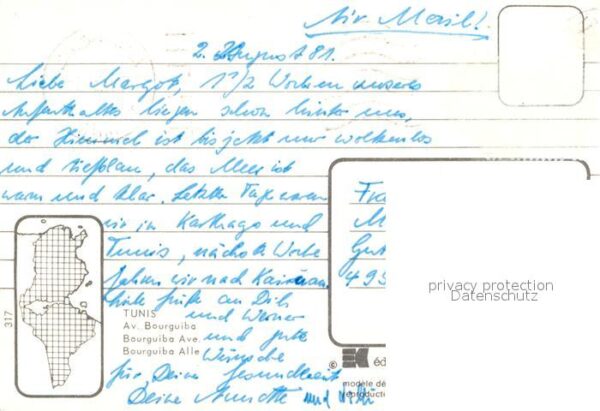 Air Mail!
2. August 81.
Liebe Margot, 1 1/2 Wochen unseres
Aufenthaltes liegen schon hinter uns,
der Himmel ist bis jetzt nur wolkenlos
und tiefblau, das Meer ist
warm und klar. Letzten Tage waren
wir in Karthago und
Tunis, nächste Woche
fahren wir nach Kairouan
Viele Grüße an Dich
und Werner
und gute
Wünsche
für Deine Gesundheit
Deine Annette und Willi
Fra
M
Gut
495
privacy protection
Datenschutz
317
TUNIS
Av. Bourguiba
Bourguiba Ave
Bourguiba Alle
© EK éd
modèle dé
reproducti